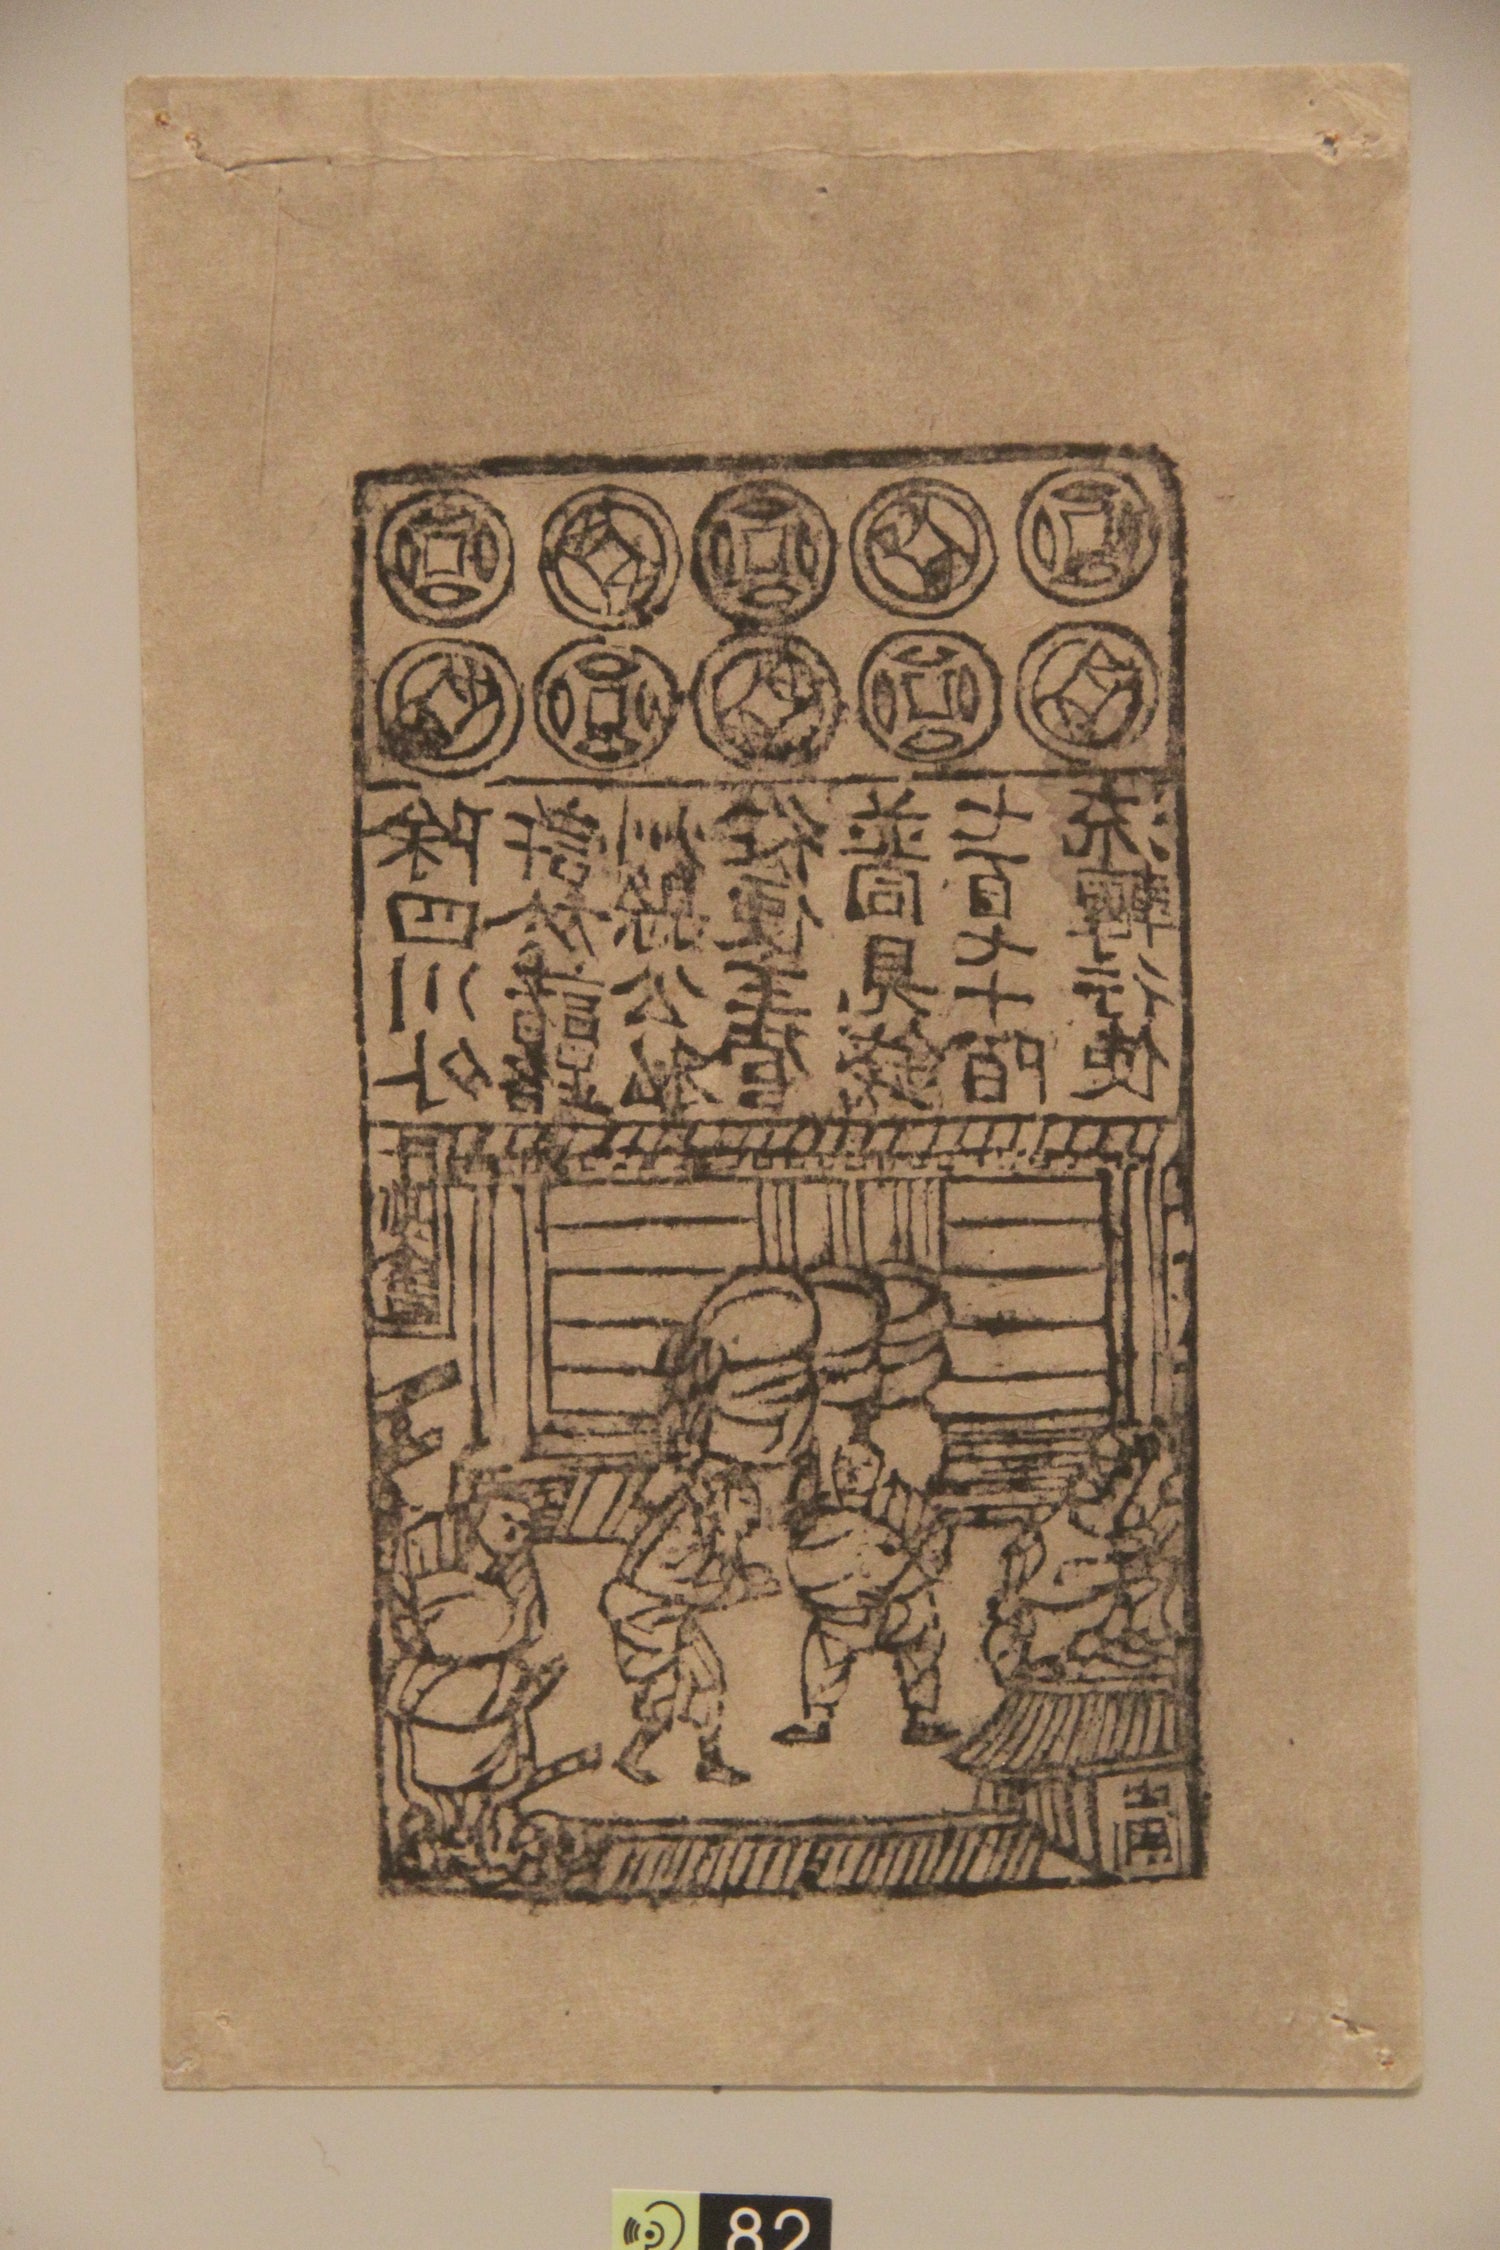 除四川外
許於諸路
州縣公私
從便主管
並同見錢
七百七十陌
流轉行使
82